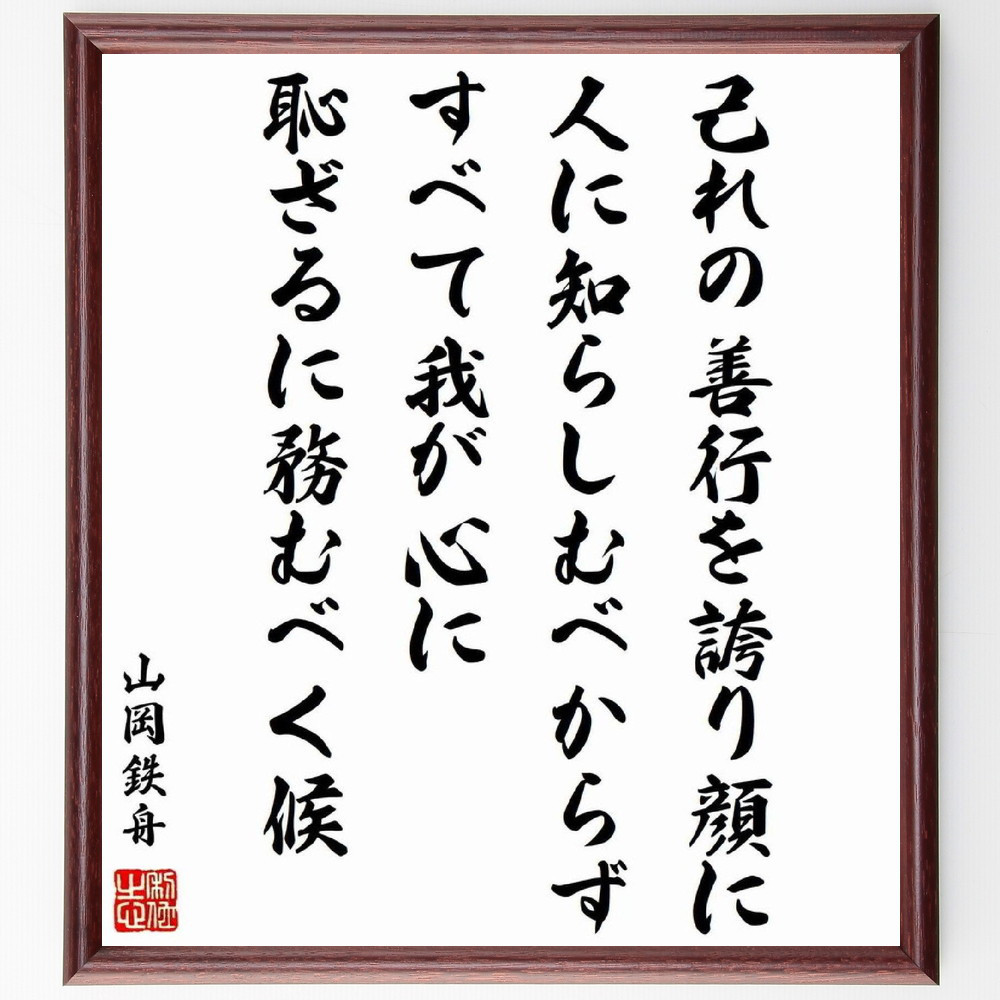 己れの善行を誇り顔に
人に知らしむべからず
すべて我が心に
恥ざるに務むべく候
山岡鉄舟